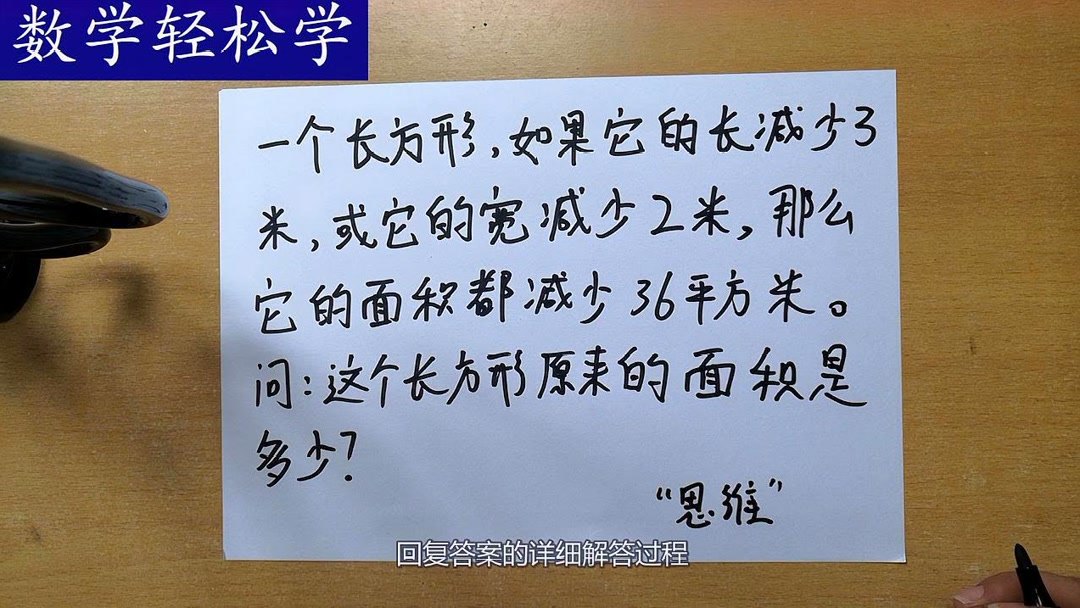 数学轻松学
一个长方形,如果它的长减少3
米,或它的宽减少2米,那么
它的面积都减少36平方米。
问:这个长方形原来的面积是
多少?
“思维”
回复答案的详细解答过程